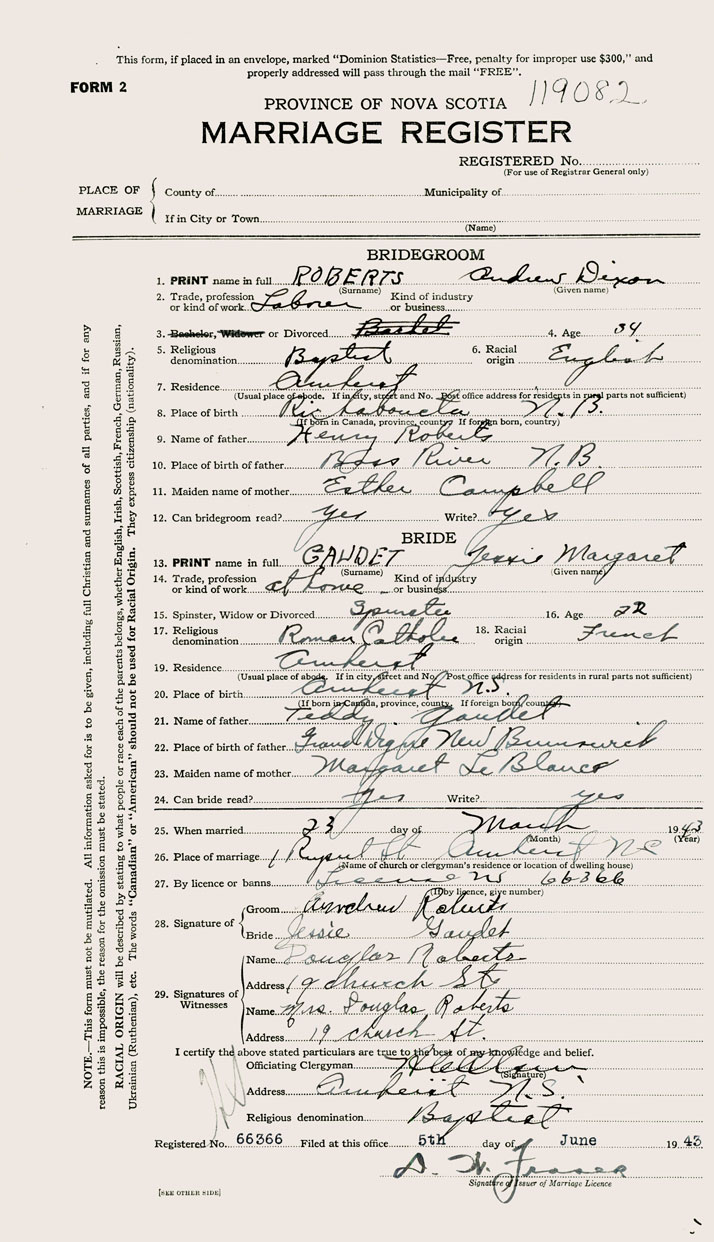 This form, if placed in an envelope, marked "Dominion Statistics—Free, penalty for improper use $300," and
properly addressed will pass through the mail "FREE".
FORM 2
119082
PROVINCE OF NOVA SCOTIA
MARRIAGE REGISTER
REGISTERED No.
(For use of Registrar General only)
PLACE OF MARRIAGE
County of Municipality of
If in City or Town
(Name)
BRIDEGROOM
1. PRINT name in full ROBERTS Andrew Dixon
(Surname) (Given name)
2. Trade, profession or kind of work Laborer Kind of industry or business
3. Bachelor, Widower or Divorced 4. Age 34
5. Religious denomination Baptist 6. Racial origin English
7. Residence Amherst
(Usual place of abode. If in city, street and No. Post office address for residents in rural parts not sufficient)
8. Place of birth Richaboucta N.B.
(If born in Canada, province, county If foreign born, country)
9. Name of father Henry Roberts
10. Place of birth of father Bass River N.B.
11. Maiden name of mother Esther Campbell
12. Can bridegroom read? yes Write? yes
BRIDE
13. PRINT name in full GAUDET Jessie Margaret
(Surname) (Given name)
14. Trade, profession or kind of work at home Kind of industry or business
15. Spinster, Widow or Divorced Spinster 16. Age 22
17. Religious denomination Roman Catholic 18. Racial origin French
19. Residence Amherst
(Usual place of abode. If in city, street and No. Post office address for residents in rural parts not sufficient)
20. Place of birth Amherst N.S.
(If born in Canada, province, county. If foreign born, country)
21. Name of father Teddy Gaudet
22. Place of birth of father Grand Digue New Brunswick
23. Maiden name of mother Margaret Le Blanc
24. Can bride read? yes Write? yes
25. When married 23 day of March 1943
(Month) (Year)
26. Place of marriage Rupert St Amherst NS
(Name of church or clergyman's residence or location of dwelling house)
27. By licence or banns License No 66366
(If by licence, give number)
28. Signature of
Groom Andrew Roberts
Bride Jessie Gaudet
29. Signatures of Witnesses
Name Douglas Roberts
Address 19 Church St.
Name Mrs. Douglas Roberts
Address 19 church St.
I certify the above stated particulars are true to the best of my knowledge and belief.
Officiating Clergyman
(Signature)
Address Amherst N.S.
Religious denomination Baptist
Registered No. 66366 Filed at this office 5th day of June 1943
D. W. Fraser
Signature of Issuer of Marriage Licence
[SEE OTHER SIDE]
NOTE.—This form must not be mutilated. All information asked for is to be given, including full Christian and surnames of all parties, and if for any
reason this is impossible, the reason for the omission must be stated.
RACIAL ORIGIN will be described by stating to what people or race each of the parents belongs, whether English, Irish, Scottish, French, German, Russian,
Ukrainian (Ruthenian), etc. The words "Canadian" or "American" should not be used for Racial Origin. They express citizenship (nationality).